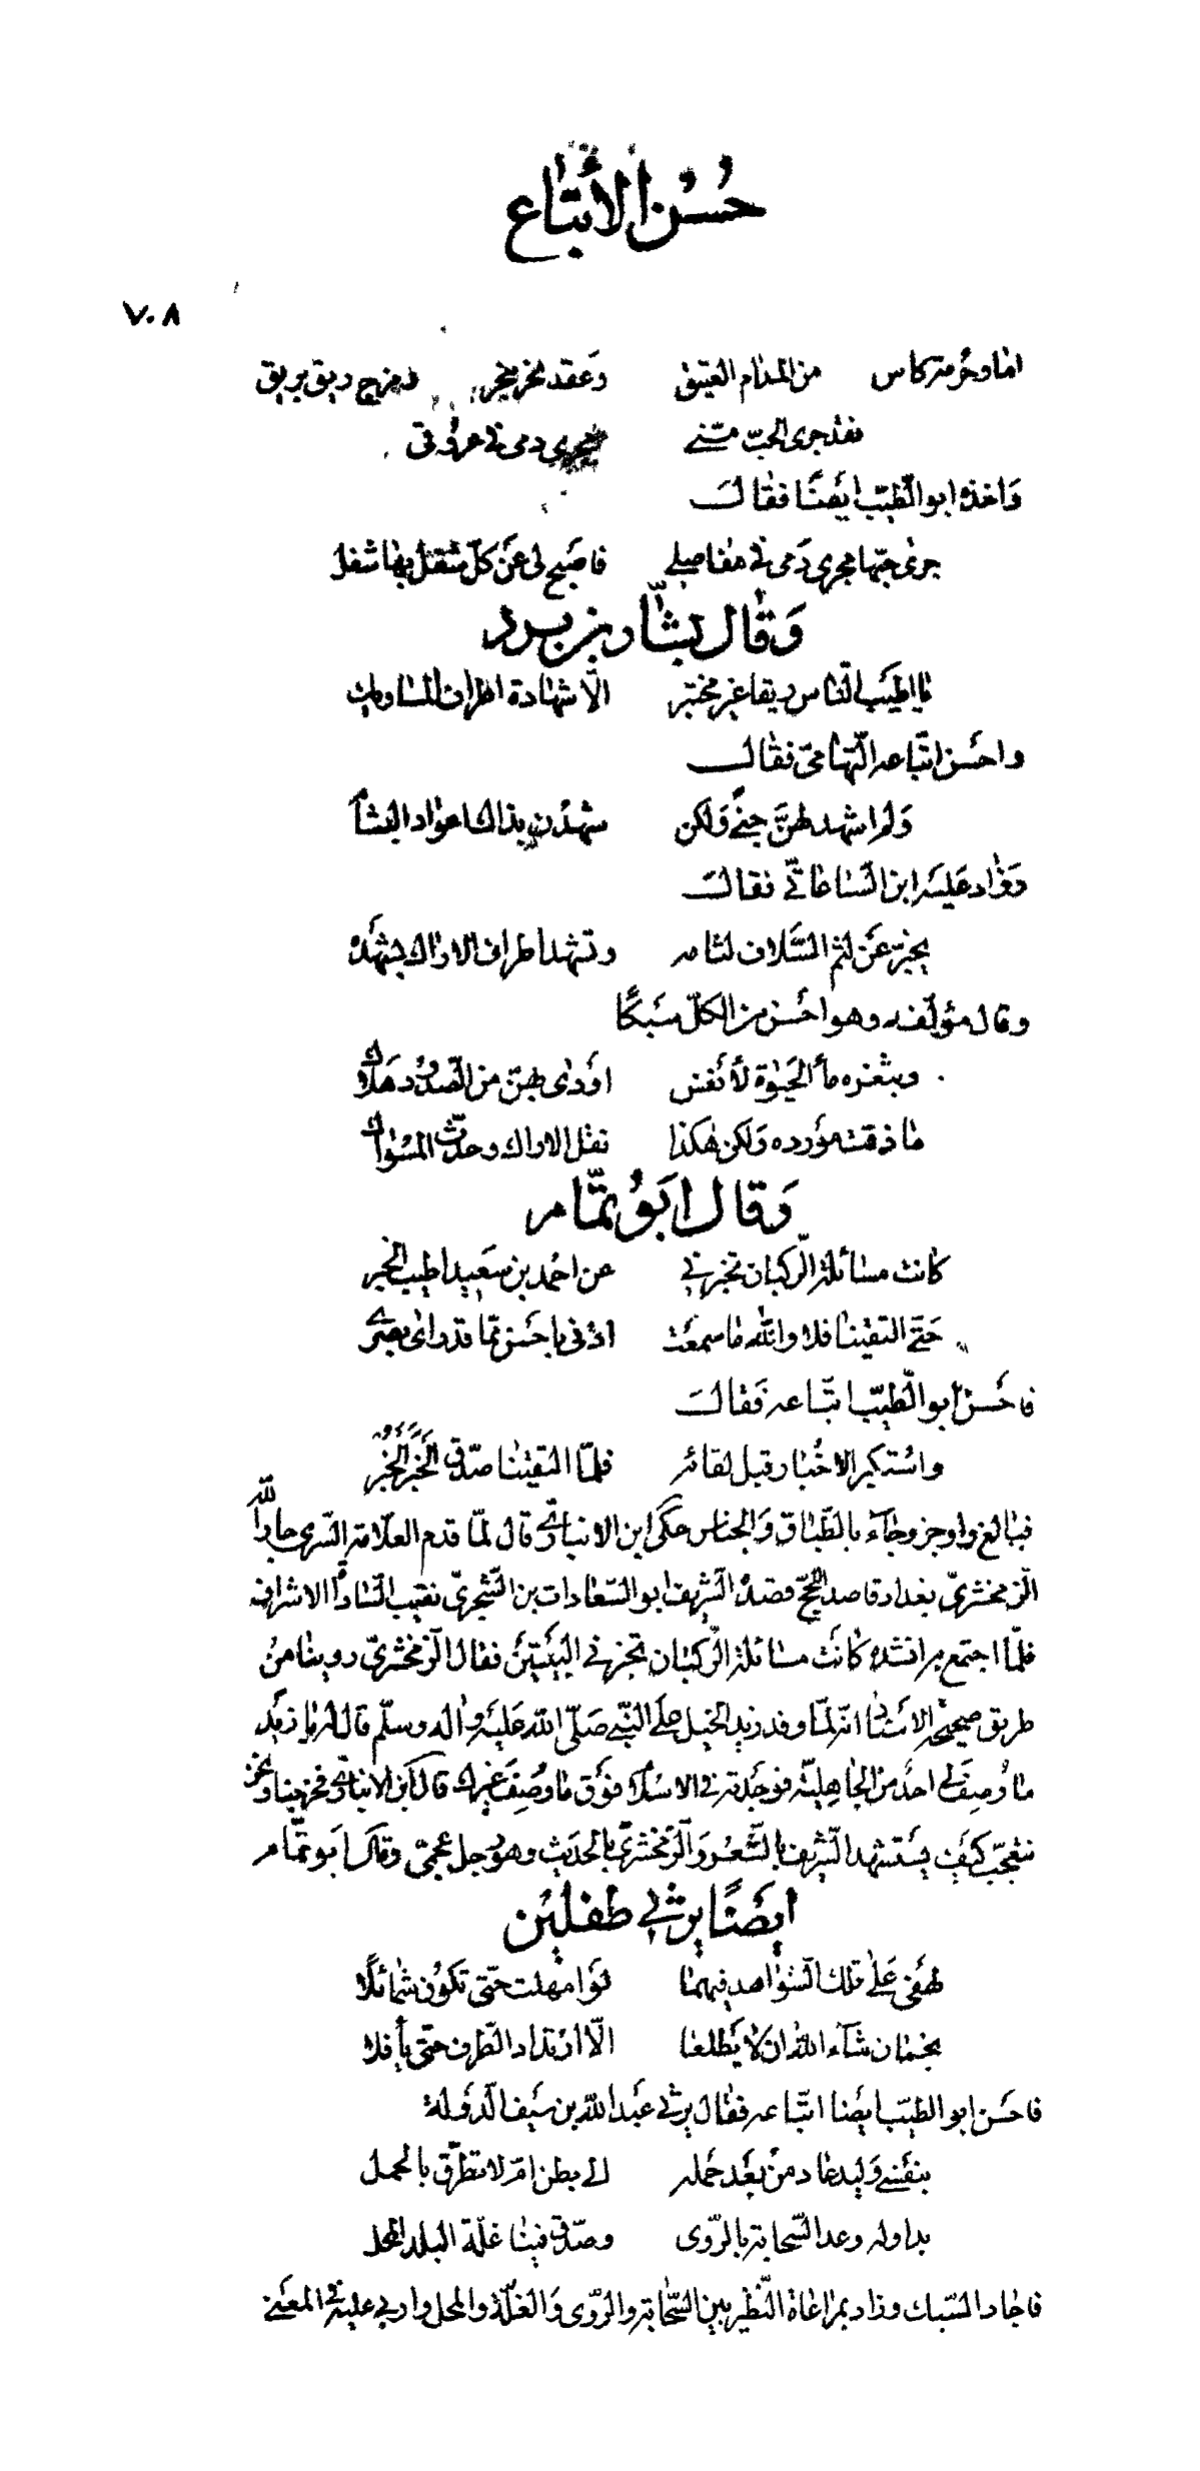 حُسْن الأتباع
٧٠٨
اما وحرمة كاس من المدام العتيق وعقد نحر بنحر ومزج ريق بريق
فقد جرى الحبّ منّي مجرى دمى فى عروقى
وَاخذه ابو الطّيّب ايضًا فقال
جرى حبّها مجرى دَمى فى مفاصلى فاصبح لى عَن كلّ شغل بها شغل
وَقال بشّار بن برد
يا اطيَب النّاس ريقا غير مختبر الّا شهادة اطراف المساويك
واحسن اتّباعه التّهامىّ فقال
وَلم اشهد لهنَّ جنىً وَلكن شهدن بذاك اعواد البشام
وَزاد عليه ابن السّاعاتى فقال
يخبّر عَن لثم السّلاف لثامه وتشهد اطراف الاراك بشهده
وقال مؤلّفه وهو احسن من الكلّ سَبكًا
وبثغره مآء الحيٰوة لأنفس اودى بهنّ من الصّدود هلاك
ما ذقت مورده وَلكن هكذا نقل الاراك وحدّث المسواك
وَقال ابوُ تمّام
كانت مسائلة الرّكبان تخبرنى عن احمد بن سَعيد اطيب الخبر
حَتّى التقينا فلا واللّه ما سمعَت اذنى باحسن ممّا قد راى بصرى
فاحسن ابو الطّيّب اتّباعه فَقال
واستكبر الاخبار قبل لقائه فلمّا التقينا صدّق الخَبَر الخُبْر
فبالغ واوجز وجآء بالطّباق وَالجناس حكى ابن الانبارى قال لمّا قدم العلّامة السّرى جار اللّه
الزّمخشرىّ بغداد قاصد الحجّ قصده الشّريف ابو السّعادات بن الشّجرىّ نقيب السّادة الاشراف
فلمّا اجتمع به انشده كانَت مسائلة الرّكبان تخبرنى البَيتَين فقال الزّمخشرىّ روينا من
طريق صحيح الاسناد انّه لمّا وفد زيد الخيل على النّبىّ صَلّى اللّه عَليه واٰله وسلّم قال له يا زيد
ما وُصِف لى احد من الجاهليّة فوجدته فى الاسلام فوق ما وصِف غيرك قال ابن الانبارى فخرجنا ونحن
نتعجّب كيَف يستشهد الشّريف بالشّعر وَالزّمخشرىّ بالحديث وهو رجل عجمىّ وقال ابو تمّام
ايضًا يرثى طفلين
لهفى عَلى تلك الشّواهد فيهما لو امهلت حتّى تكون شمائلًا
نجمان شآء اللّه ان لا يَطلعا الّا ارتداد الطّرف حتّى يأفلا
فاحسن ابو الطيّب ايضا اتّباعه فقال يرثى عَبد اللّه بن سَيف الدّولة
بنفسى وَليد عاد من بَعد حَمله الى بطن امّ لا تطرّق بالحمل
بدا وله وعد السّحابة بالرّوى وصدّ وفينا غلّة البلد المحل
فاجاد السّبك وزاد بمراعاة النّظير بين السّحابة والرّوى وَالغلّة والمحل واربى عليه فى المعنى